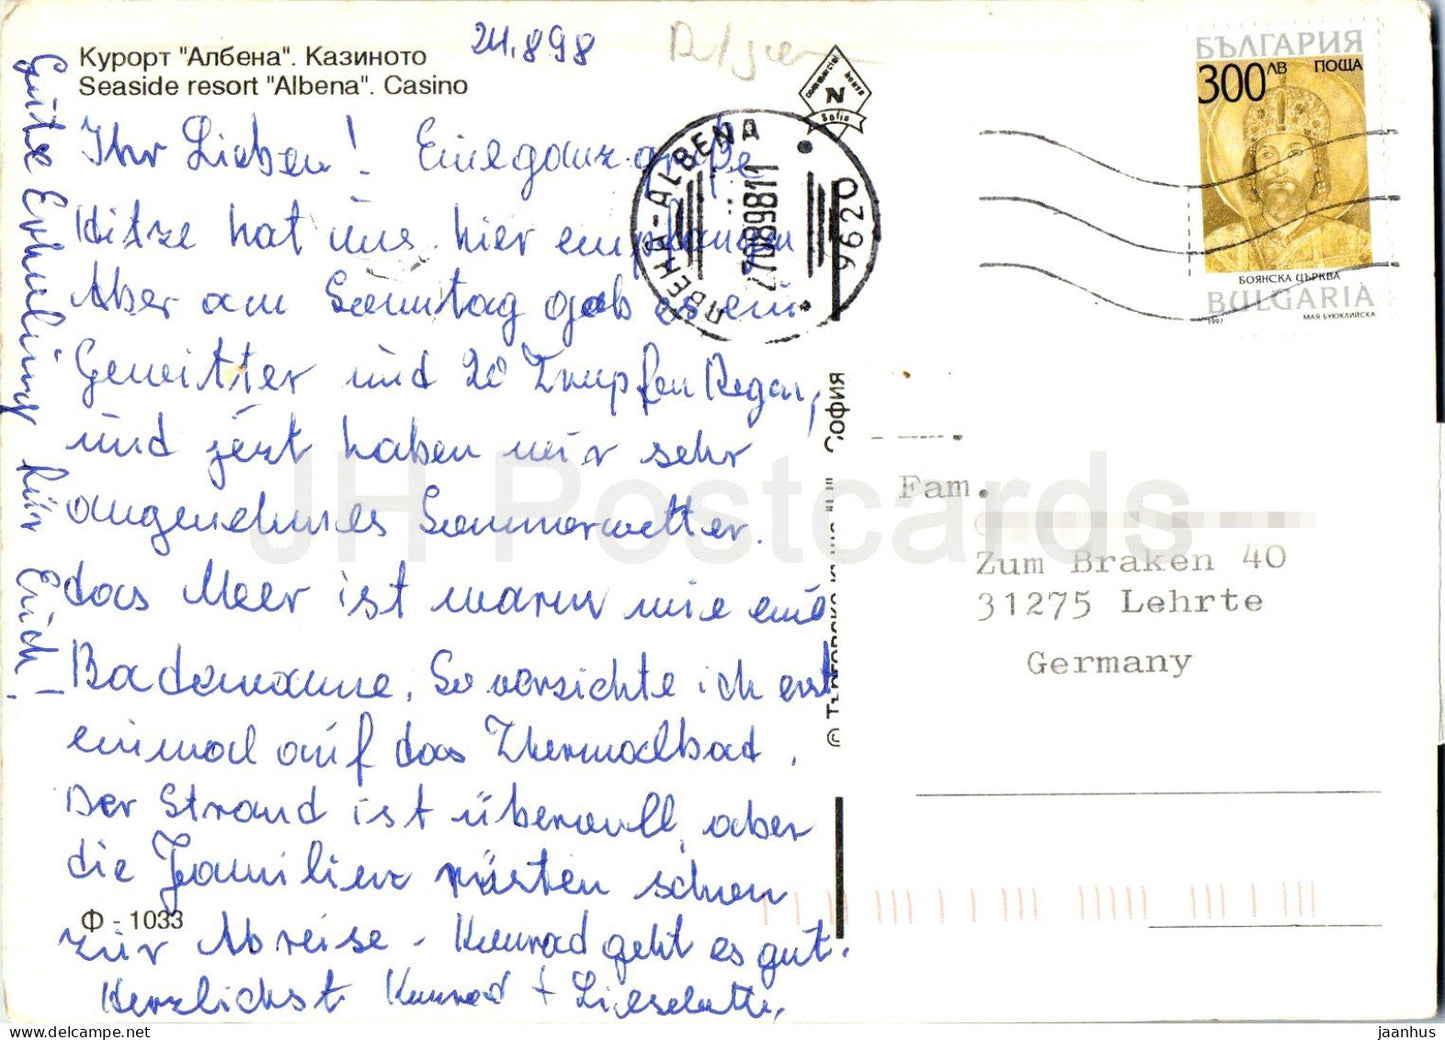 Курорт "Албена". Казиното
Seaside resort "Albena". Casino
24.8.98
commercial house
N
Sofia
БЪЛГАРИЯ
300 ЛВ ПОЩА
БОЯНСКА ЦЪРКВА
BULGARIA
1997 МАЯ БУЮКЛИЙСКА
АЛБЕНА-ALBENA
27089811
9620
Ihr Lieben! Eine ganz große
Hitze hat uns hier empfangen
Aber am Sonntag gab es ein
Gewitter und 20 Tropfen Regen,
und jezt haben wir sehr
angenehmes Sommerwetter.
das Meer ist warm wie eine
Badewanne. So verzichte ich erst
einmal auf das Thermalbad.
Der Strand ist übervoll, aber
die Familien rüsten schon
zur Abreise. Konrad geht es gut.
Herzlichst Konrad + Lieselotte,
Gute Erholung für Euch!
Ф - 1033
София
© Търговска къща "N"
Fam.
Zum Braken 40
31275 Lehrte
Germany
JH Postcards
jaanhus
delcampe.net